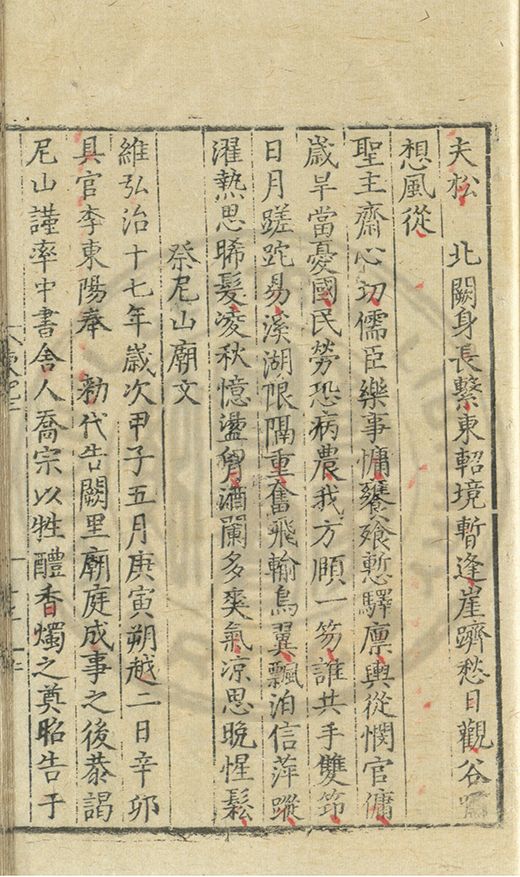 夫松　北闕身長繫東軺境暫逢崖躋愁日觀谷
想風從
聖主齋心切儒臣樂事慵饔飧慙驛廪輿從憫官傭
歲旱當憂國民勞恐病農我方頤一笏誰共手雙筇
日月蹉跎易溪湖限隔重奮飛輸鳥翼飄泊信萍蹤
濯熱思晞髮凌秋憶盪胷酒闌多爽氣凉思晚惺鬆
祭尼山廟文
維弘治十七年歲次甲子五月庚寅朔越二日辛卯
具官李東陽奉　勑代告闕里廟庭成事之後恭謁
尼山謹率中書舍人喬宗以牲醴香燭之奠昭告于